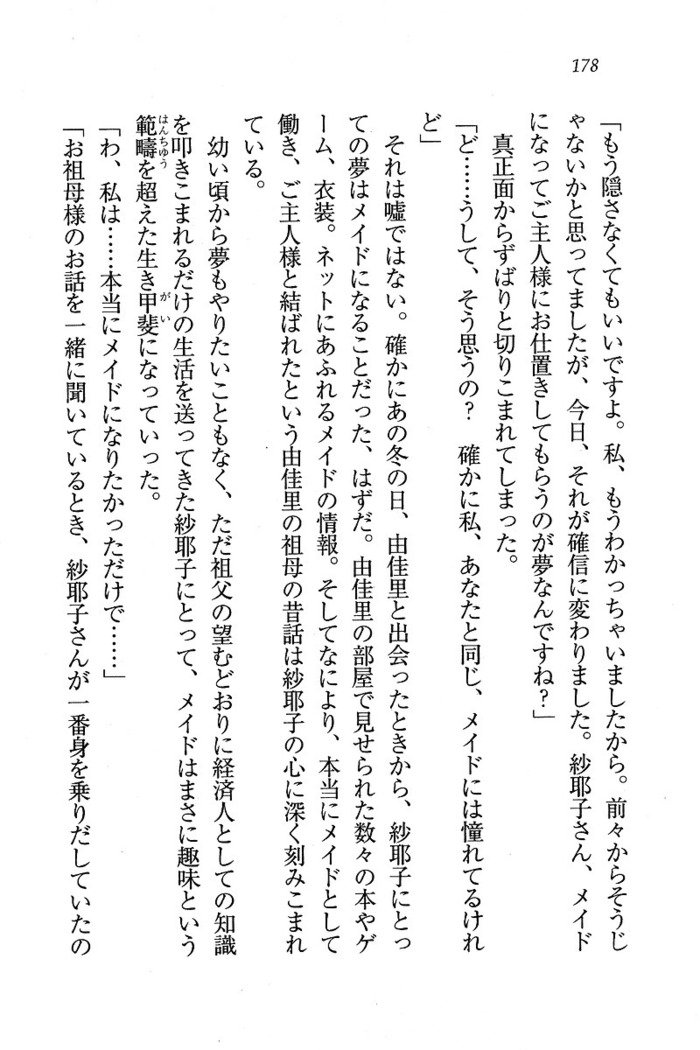 178
「もう隠さなくてもいいですよ。私、もうわかっちゃいましたから。前々からそうじ
ゃないかと思ってましたが、今日、それが確信に変わりました。紗耶子さん、メイド
になってご主人様にお仕置きしてもらうのが夢なんですね？」
　真正面からずばりと切りこまれてしまった。
「ど……うして、そう思うの？　確かに私、あなたと同じ、メイドには憧れてるけれ
ど」
　それは嘘ではない。確かにあの冬の日、由佳里と出会ったときから、紗耶子にとっ
ての夢はメイドになることだった、はずだ。由佳里の部屋で見せられた数々の本やゲ
ーム、衣装。ネットにあふれるメイドの情報。そしてなにより、本当にメイドとして
働き、ご主人様と結ばれたという由佳里の祖母の昔話は紗耶子の心に深く刻みこまれ
ている。
　幼い頃から夢もやりたいこともなく、ただ祖父の望むどおりに経済人としての知識
を叩きこまれるだけの生活を送ってきた紗耶子にとって、メイドはまさに趣味という
範疇を超えた生き甲斐になっていった。
はんちゅう
がい
「わ、私は……本当にメイドになりたかっただけで……」
「お祖母様のお話を一緒に聞いているとき、紗耶子さんが一番身を乗りだしていたの